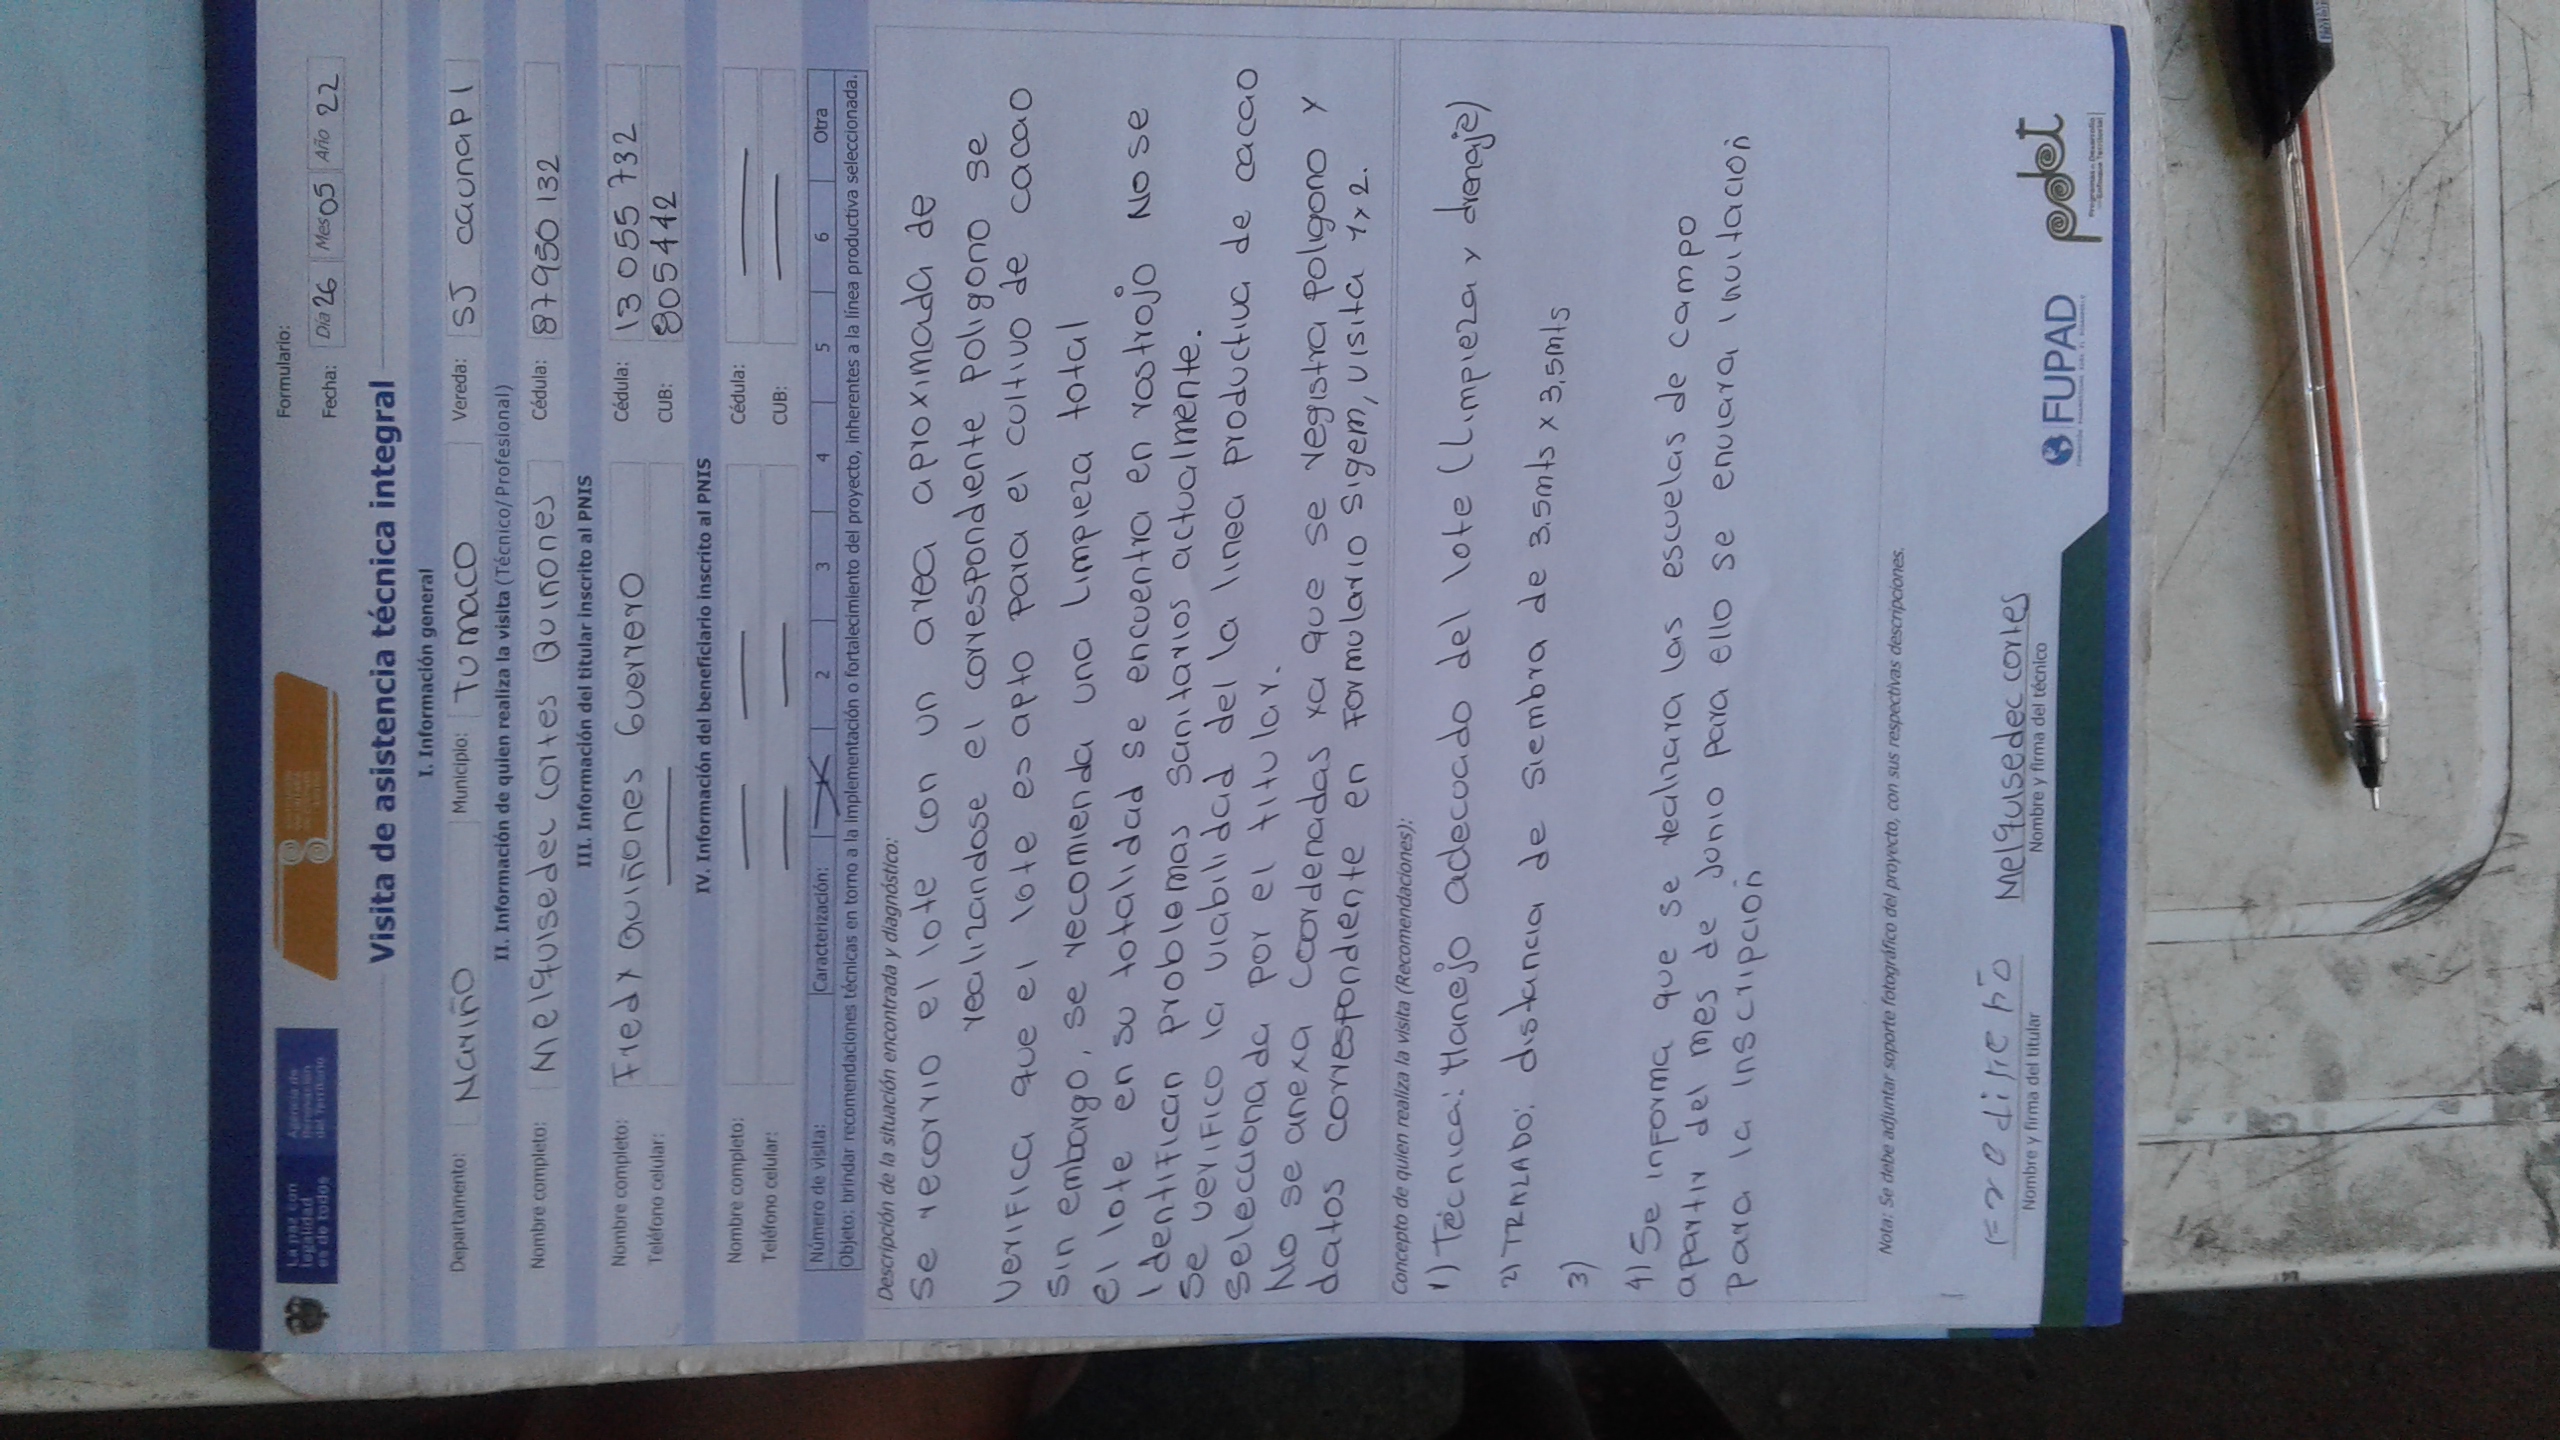 La paz con
legalidad
es de todos
Agencia de
Renovación
del Territorio
Formulario:
Fecha: Día 26 Mes 05 Año 22
Visita de asistencia técnica integral
I. Información general
Departamento: Nariño Municipio: Tumaco Vereda: SJ caunapi
II. Información de quien realiza la visita (Técnico/Profesional)
Nombre completo: Melquisedec cortes Quiñones Cédula: 87950132
III. Información del titular inscrito al PNIS
Nombre completo: Fredy Quiñones Guerrero Cédula: 13 055 732
Teléfono celular: — CUB: 805442
IV. Información del beneficiario inscrito al PNIS
Nombre completo: — — Cédula: —
Teléfono celular: — — CUB: —
Número de visita: Caracterización: X 2 3 4 5 6 Otra
Objeto: brindar recomendaciones técnicas en torno a la implementación o fortalecimiento del proyecto, inherentes a la línea productiva seleccionada.
Descripción de la situación encontrada y diagnóstico:
Se recorrio el lote con un area aproximada de
realizandose el correspondiente poligono se
verifica que el lote es apto para el cultivo de cacao
sin embargo, se recomienda una limpieza total
el lote en su totalidad se encuentra en rastrojo No se
identifican problemas sanitarios actualmente.
Se verifico la viabilidad del la linea productiva de cacao
seleccionada por el titular.
No se anexa coordenadas ya que se registra poligono y
datos correspondiente en formulario sigem, visita 1x2.
Concepto de quien realiza la visita (Recomendaciones):
1) Técnica: Manejo adecuado del lote (Limpieza y drenaje)
2) TRAZADO: distancia de siembra de 3.5mts x 3,5mts
3)
4) Se informa que se realizara las escuelas de campo
apartir del mes de Junio para ello se enviara invitación
para la inscripción
Nota: Se debe adjuntar soporte fotográfico del proyecto, con sus respectivas descripciones.
Melquisedec cortes
Nombre y firma del titular Nombre y firma del técnico
FUPAD
pdet
Programas de Desarrollo
con Enfoque Territorial